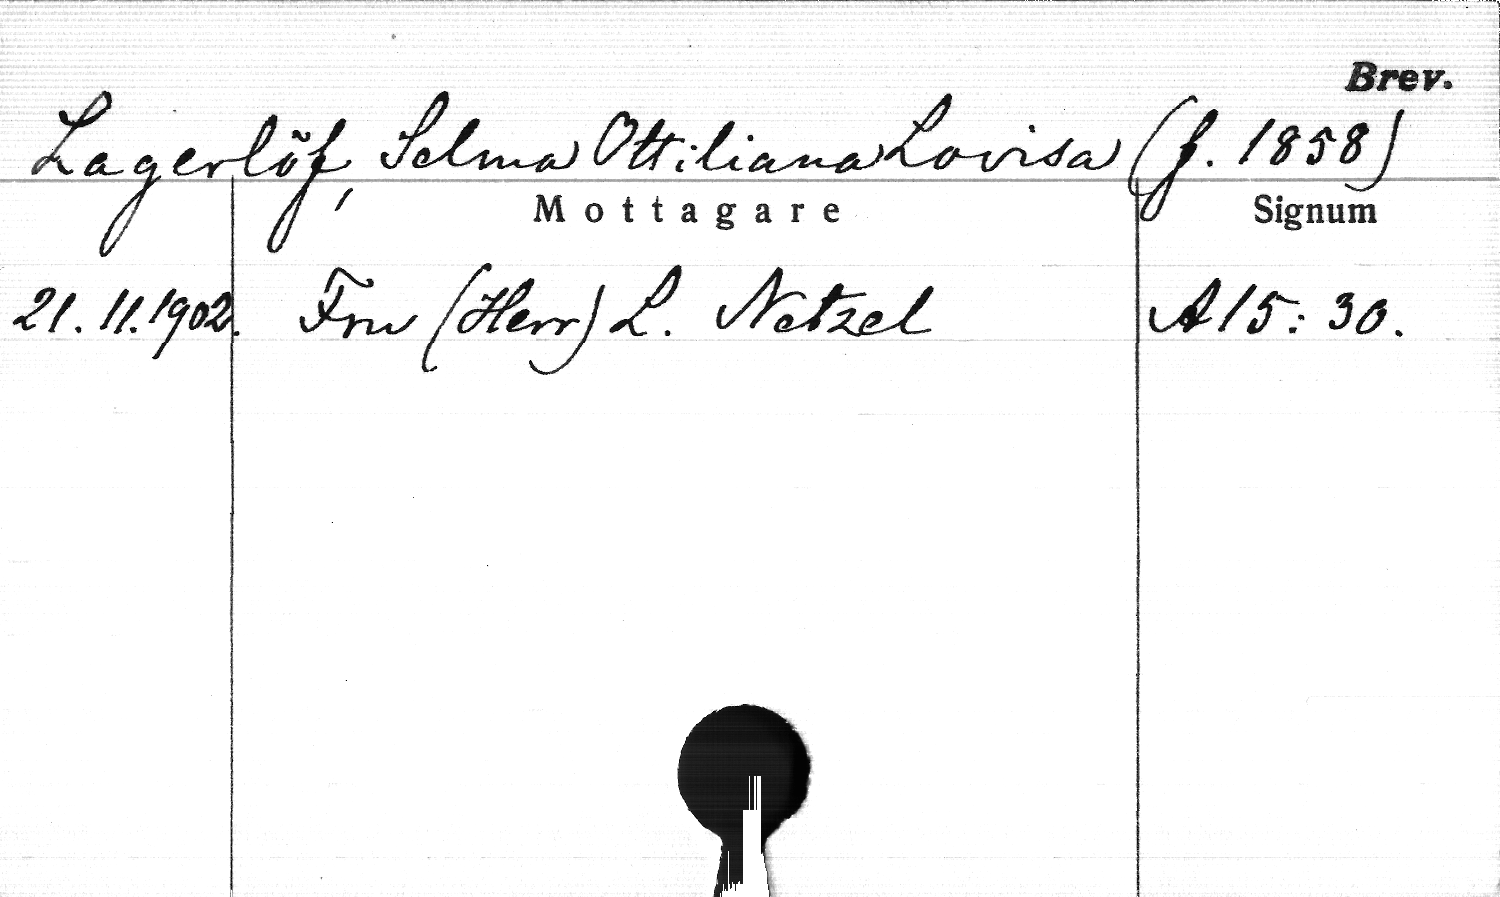 Brev.
Lagerlöf, Selma Ottiliana Lovisa (f. 1858)
Mottagare Signum
21.11.1902. Fru (Herr) L. Netzel A15:30.